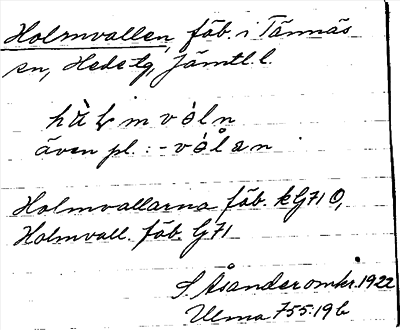 Holmvallen, fäb. i Tännäs
sn, Hede tg, Jämtl. l.
även pl.: -
Holmvallarna fäb. kG71 O,
Holmvall. fäb. G71
S. Åsander omkr. 1922
Ulma 755:19b